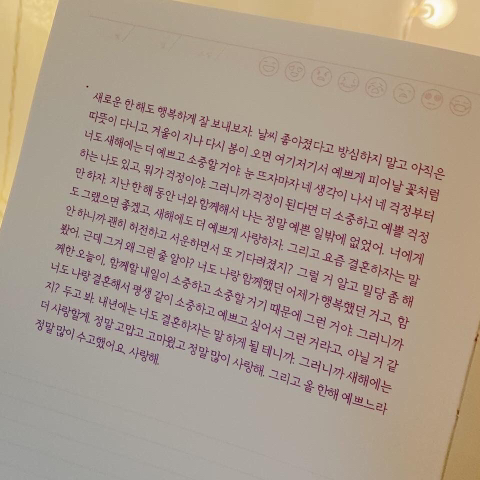 새로운 한 해도 행복하게 잘 보내보자. 날씨 좋아졌다고 방심하지 말고 아직은
따뜻이 다니고, 겨울이 지나 다시 봄이 오면 여기저기서 예쁘게 피어날 꽃처럼
너도 새해에는 더 예쁘고 소중할 거야. 눈 뜨자마자 네 생각이 나서 네 걱정부터
하는 나도 있고, 뭐가 걱정이야. 그러니까 걱정이 된다면 더 소중하고 예쁠 걱정
만 하자. 지난 한 해 동안 너와 함께해서 나는 정말 예쁜 일밖에 없었어. 너에게
도 그랬으면 좋겠고, 새해에도 더 예쁘게 사랑하자. 그리고 요즘 결혼하자는 말
안 하니까 괜히 허전하고 서운하면서 또 기다려졌지? 그럴 거 알고 밀당 좀 해
봤어. 근데 그거 왜 그런 줄 알아? 너도 나랑 함께했던 어제가 행복했던 거고, 함
께한 오늘이, 함께할 내일이 소중하고 소중할 거기 때문에 그런 거야. 그러니까
너도 나랑 결혼해서 평생 같이 소중하고 예쁘고 싶어서 그런 거라고. 아닐 거 같
지? 두고 봐. 내년에는 너도 결혼하자는 말 하게 될 테니까. 그러니까 새해에는
더 사랑할게. 정말 고맙고 고마웠고 정말 많이 사랑해. 그리고 올 한해 예쁘느라
정말 많이 수고했어요. 사랑해.